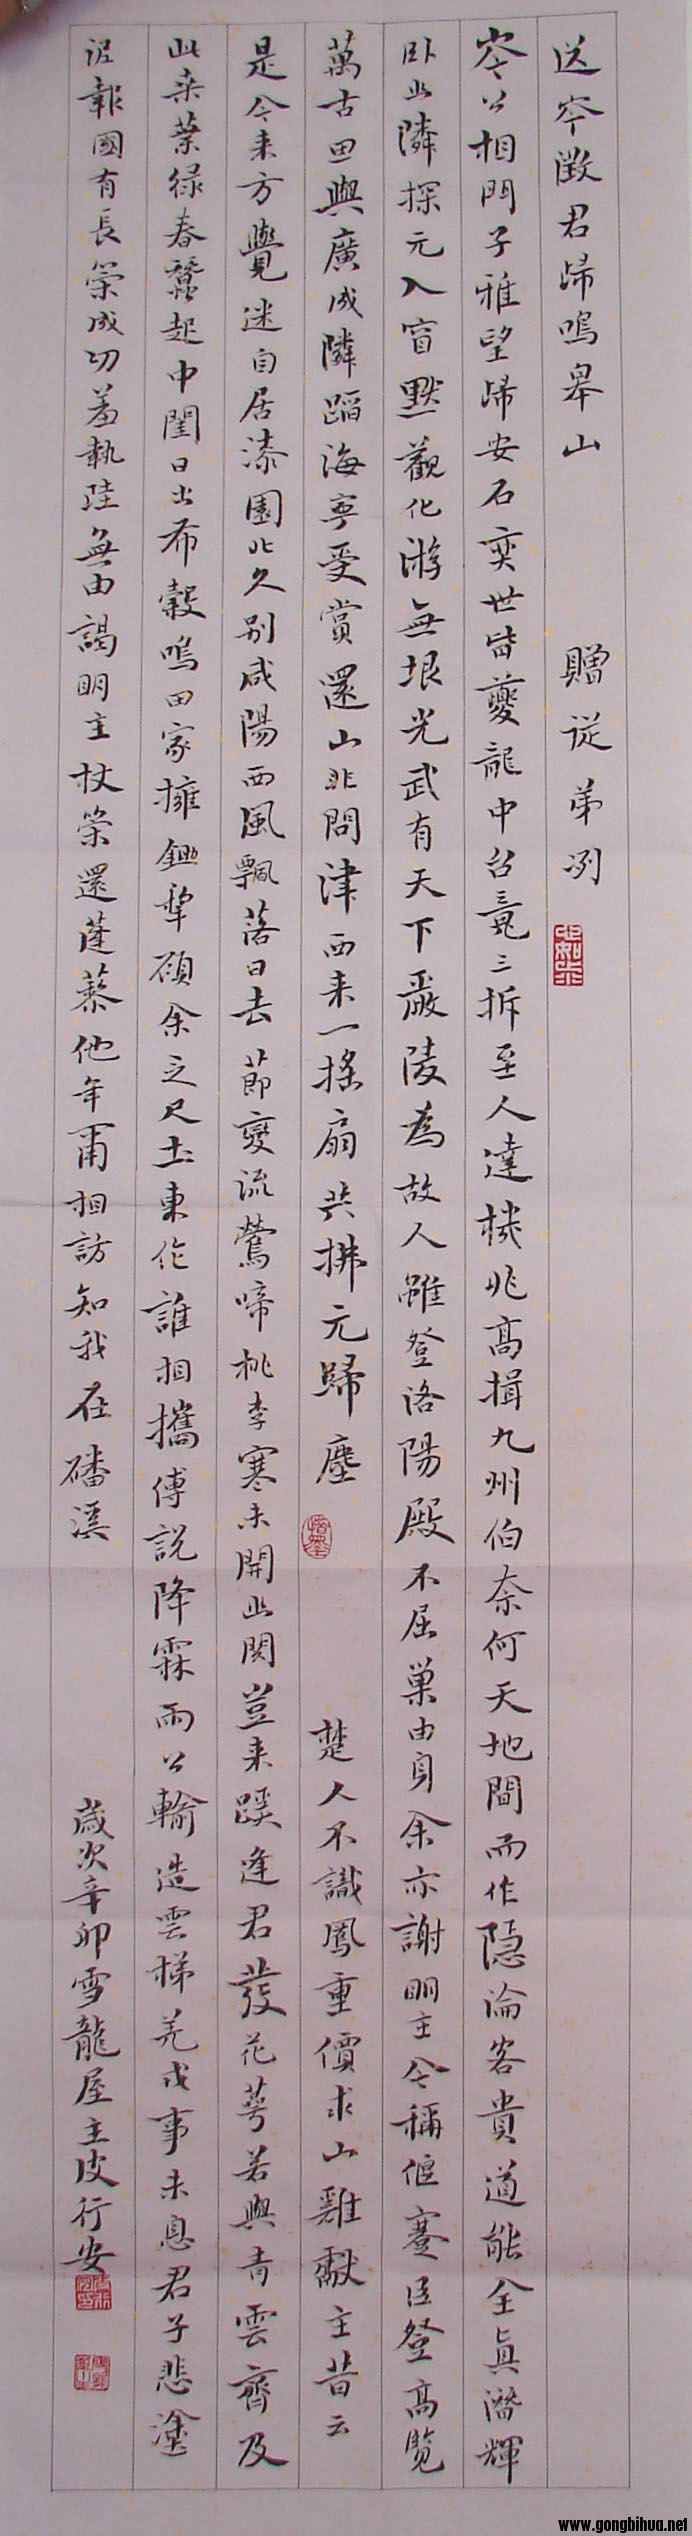 送岑徵君歸鳴皋山 贈從弟冽
岑公相門子雅望歸安石奕世皆夔龍中台竟三拆至人達機兆高揖九州伯奈何天地間而作隱淪客貴道能全真潛輝
卧幽隣探元入窅默觀化游無垠光武有天下嚴陵為故人雖登洛陽殿不屈巢由身余亦謝明主今稱偃蹇臣登高覽
萬古思與廣成隣蹈海寧受賞還山非問津西来一摇扇共拂元歸塵 楚人不識鳳重價求山雞獻主昔云
是今来方覺迷自居漆園北久别咸陽西風飄落日去節變流鶯啼桃李寒未開幽関豈来蹊逢君發花萼若與青雲齊及
此桑葉绿春蠶起中閨日出布穀鳴田家擁鋤犂顧余乏尺土東作誰相攜傅説降霖雨公輸造雲梯羌戎事未息君子悲塗
泥報國有長策成功羞執珪無由謁明主杖策還蓬藜他年爾相訪知我在磻溪 歲次辛卯雪龍屋主皮行安
www.gongbihua.net